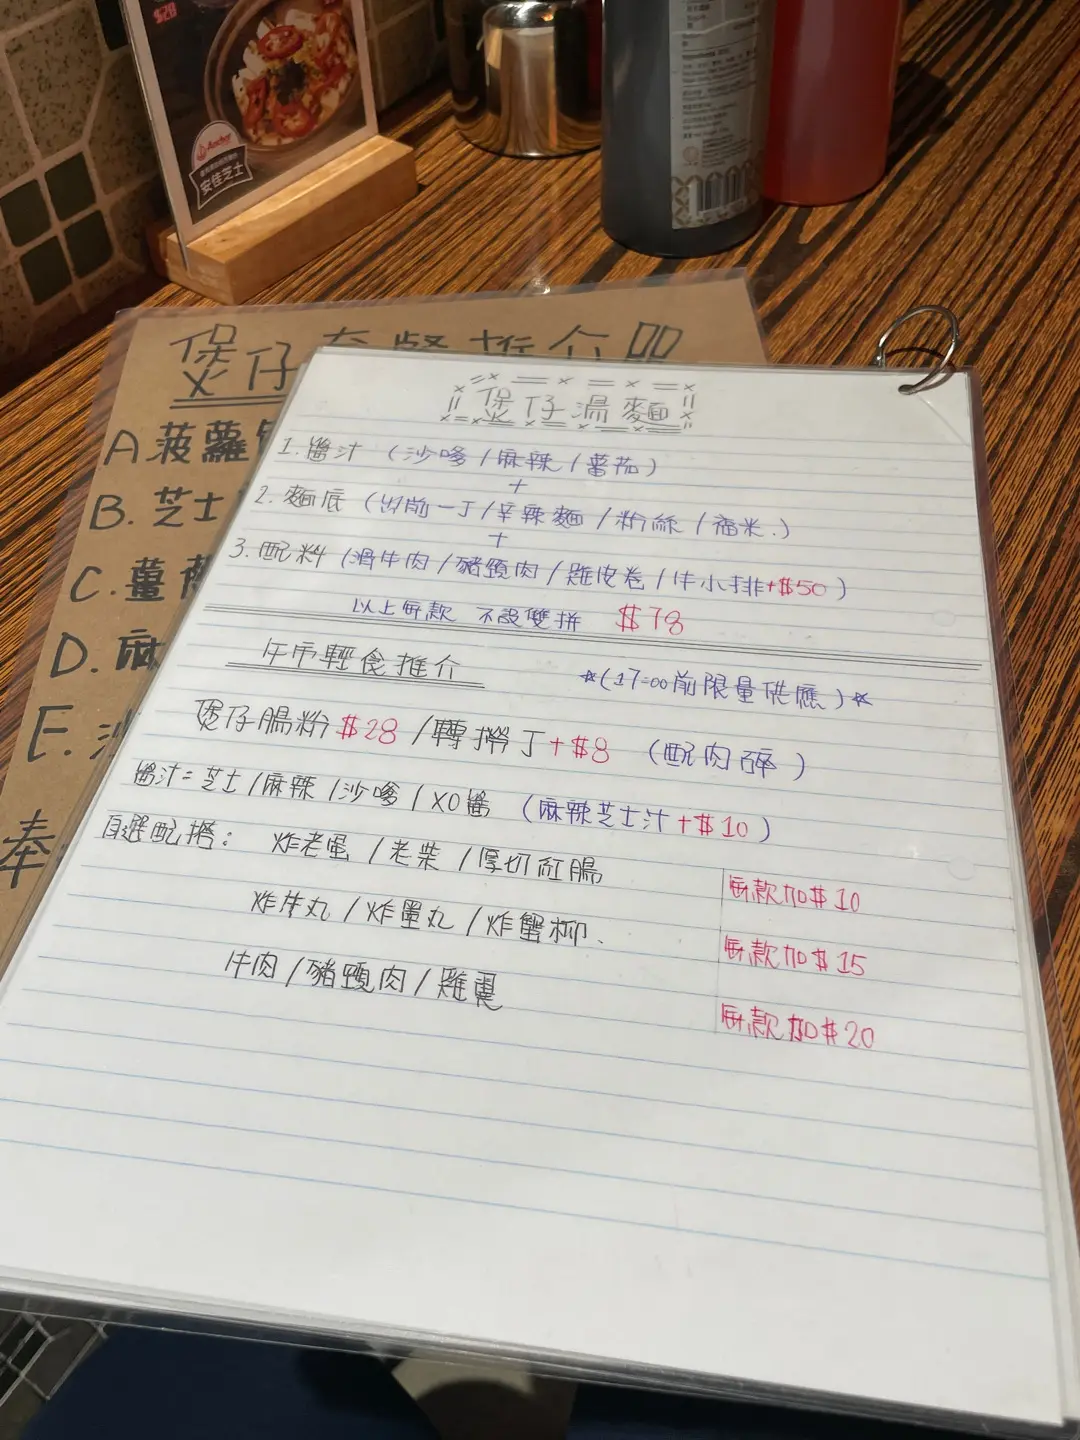 $28
Anchor
安佳芝士
煲仔套餐推介
A 菠蘿
B. 芝士
C. 薑
D. 麻
E. 沙
奉
煲仔湯麵
1. 醬汁 (沙嗲/麻辣/蕃茄)
+
2. 麵底 (出前一丁/辛辣麵/粉絲/福米.)
+
3. 配料 (滑牛肉/豬頸肉/雞皮卷/牛小排+$50)
以上每款 不設雙拼 $78
午市輕食推介 *(17=00前限量供應)*
煲仔腸粉 $28 /轉撈丁+$8 (配肉碎)
醬汁=芝士/麻辣/沙嗲/XO醬 (麻辣芝士汁+$10)
自選配搭: 炸老蛋/老柴/厚切紅腸 每款加$10
炸牛丸/炸墨丸/炸蟹柳、 每款加$15
牛肉/豬頸肉/雞翼 每款加$20